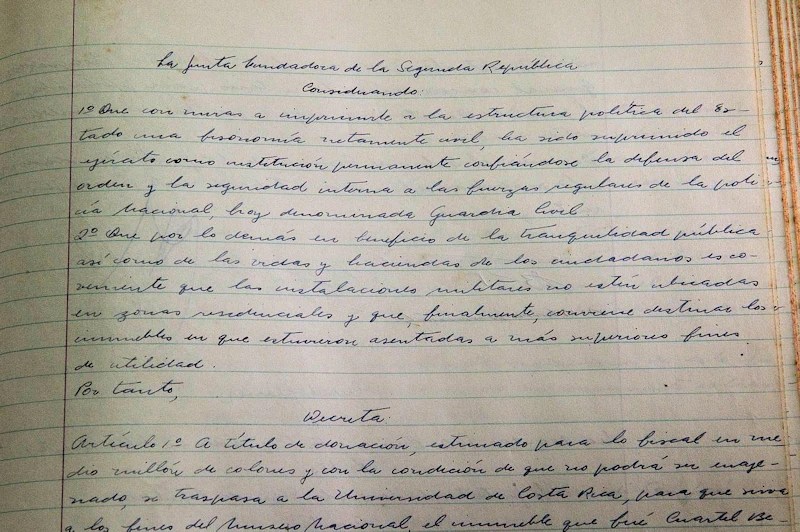 La Junta Fundadora de la Segunda República
Considerando:
1º Que con miras a imprimirle a la estructura política del Es-
tado una fisonomía netamente civil, ha sido suprimido el
ejército como institución permanente confiándose la defensa del
orden y la seguridad interna a las fuerzas regulares de la poli-
cía Nacional, hoy denominada Guardia Civil
2º Que por lo demás en beneficio de la tranquilidad pública
así como de las vidas y haciendas de los ciudadanos es co-
veniente que las instalaciones militares no estén ubicadas
en zonas residenciales y que, finalmente, conviene destinar los
inmuebles en que estuvieron asentadas a más superiores fines
de utilidad.
Por tanto,
Decreta:
Artículo 1º A título de donación, estimado para lo fiscal en me-
dio millón de colones y con la condición de que no podrá ser enaje-
nado, se traspasa a la Universidad de Costa Rica, para que sirva
a los fines del Museo Nacional, el inmueble que fué Cuartel Be-